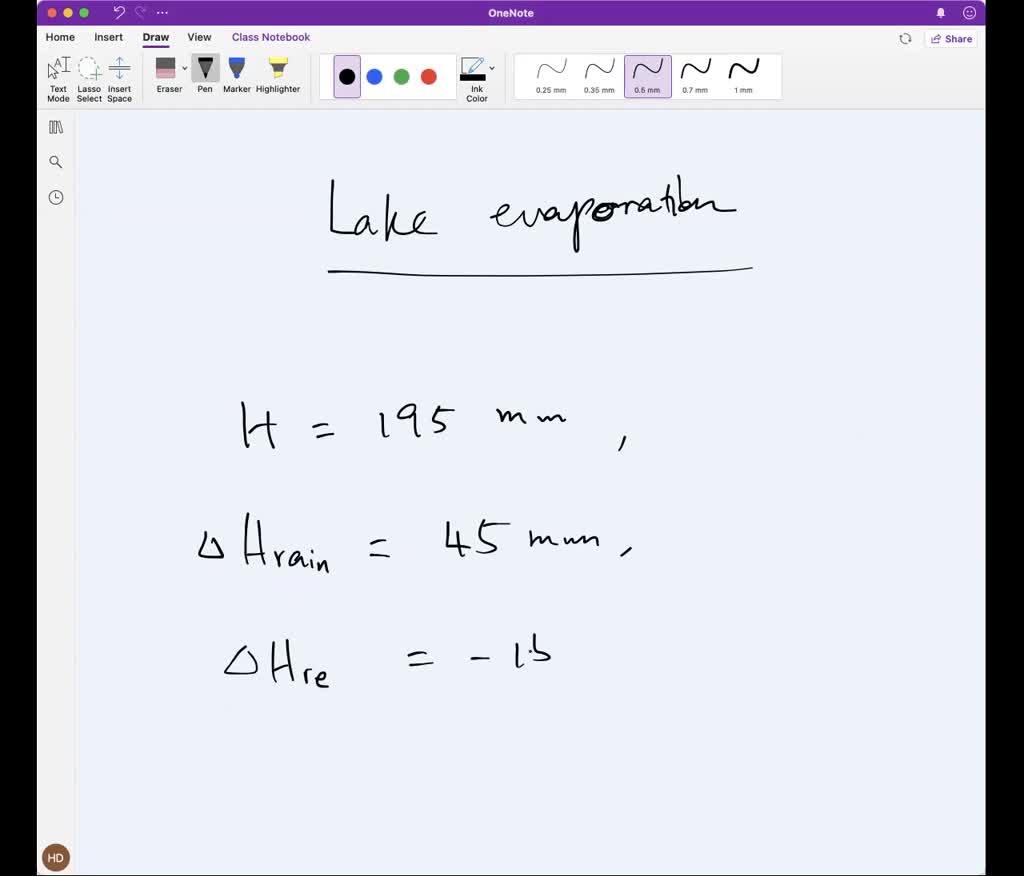 OneNote
Home Insert Draw View Class Notebook Share
Text Mode Lasso Select Insert Space Eraser Pen Marker Highlighter Ink Color 0.25 mm 0.35 mm 0.5 mm 0.7 mm 1 mm
Lake evaporation
H = 195 mm ,
Δ Hrain = 45 mm ,
Δ Hre = -
HD